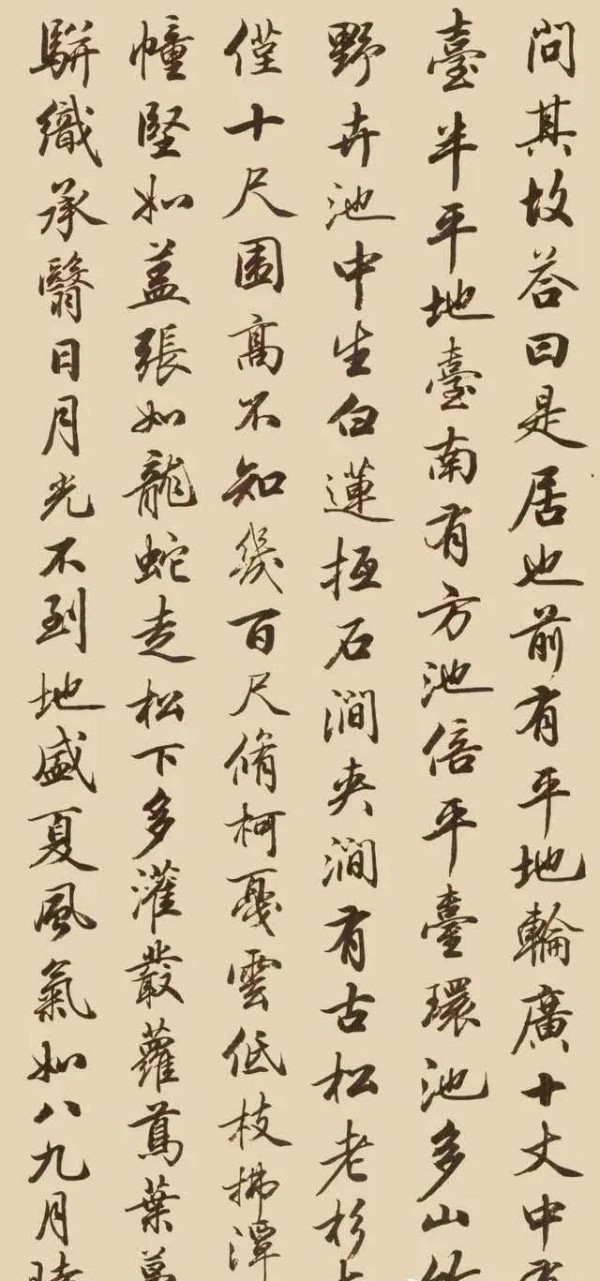 問其故荅曰是居也前有平地輪廣十丈中
臺半平地臺南有方池倍平臺環池多山
野卉池中生白蓮抵石澗夾澗有古松老杉
僅十尺圍高不知幾百尺脩柯戛雲低枝拂潭
幢堅如盖張如龍蛇走松下多灌叢蘿蔦葉
駢織承翳日月光不到地盛夏風氣如八九月